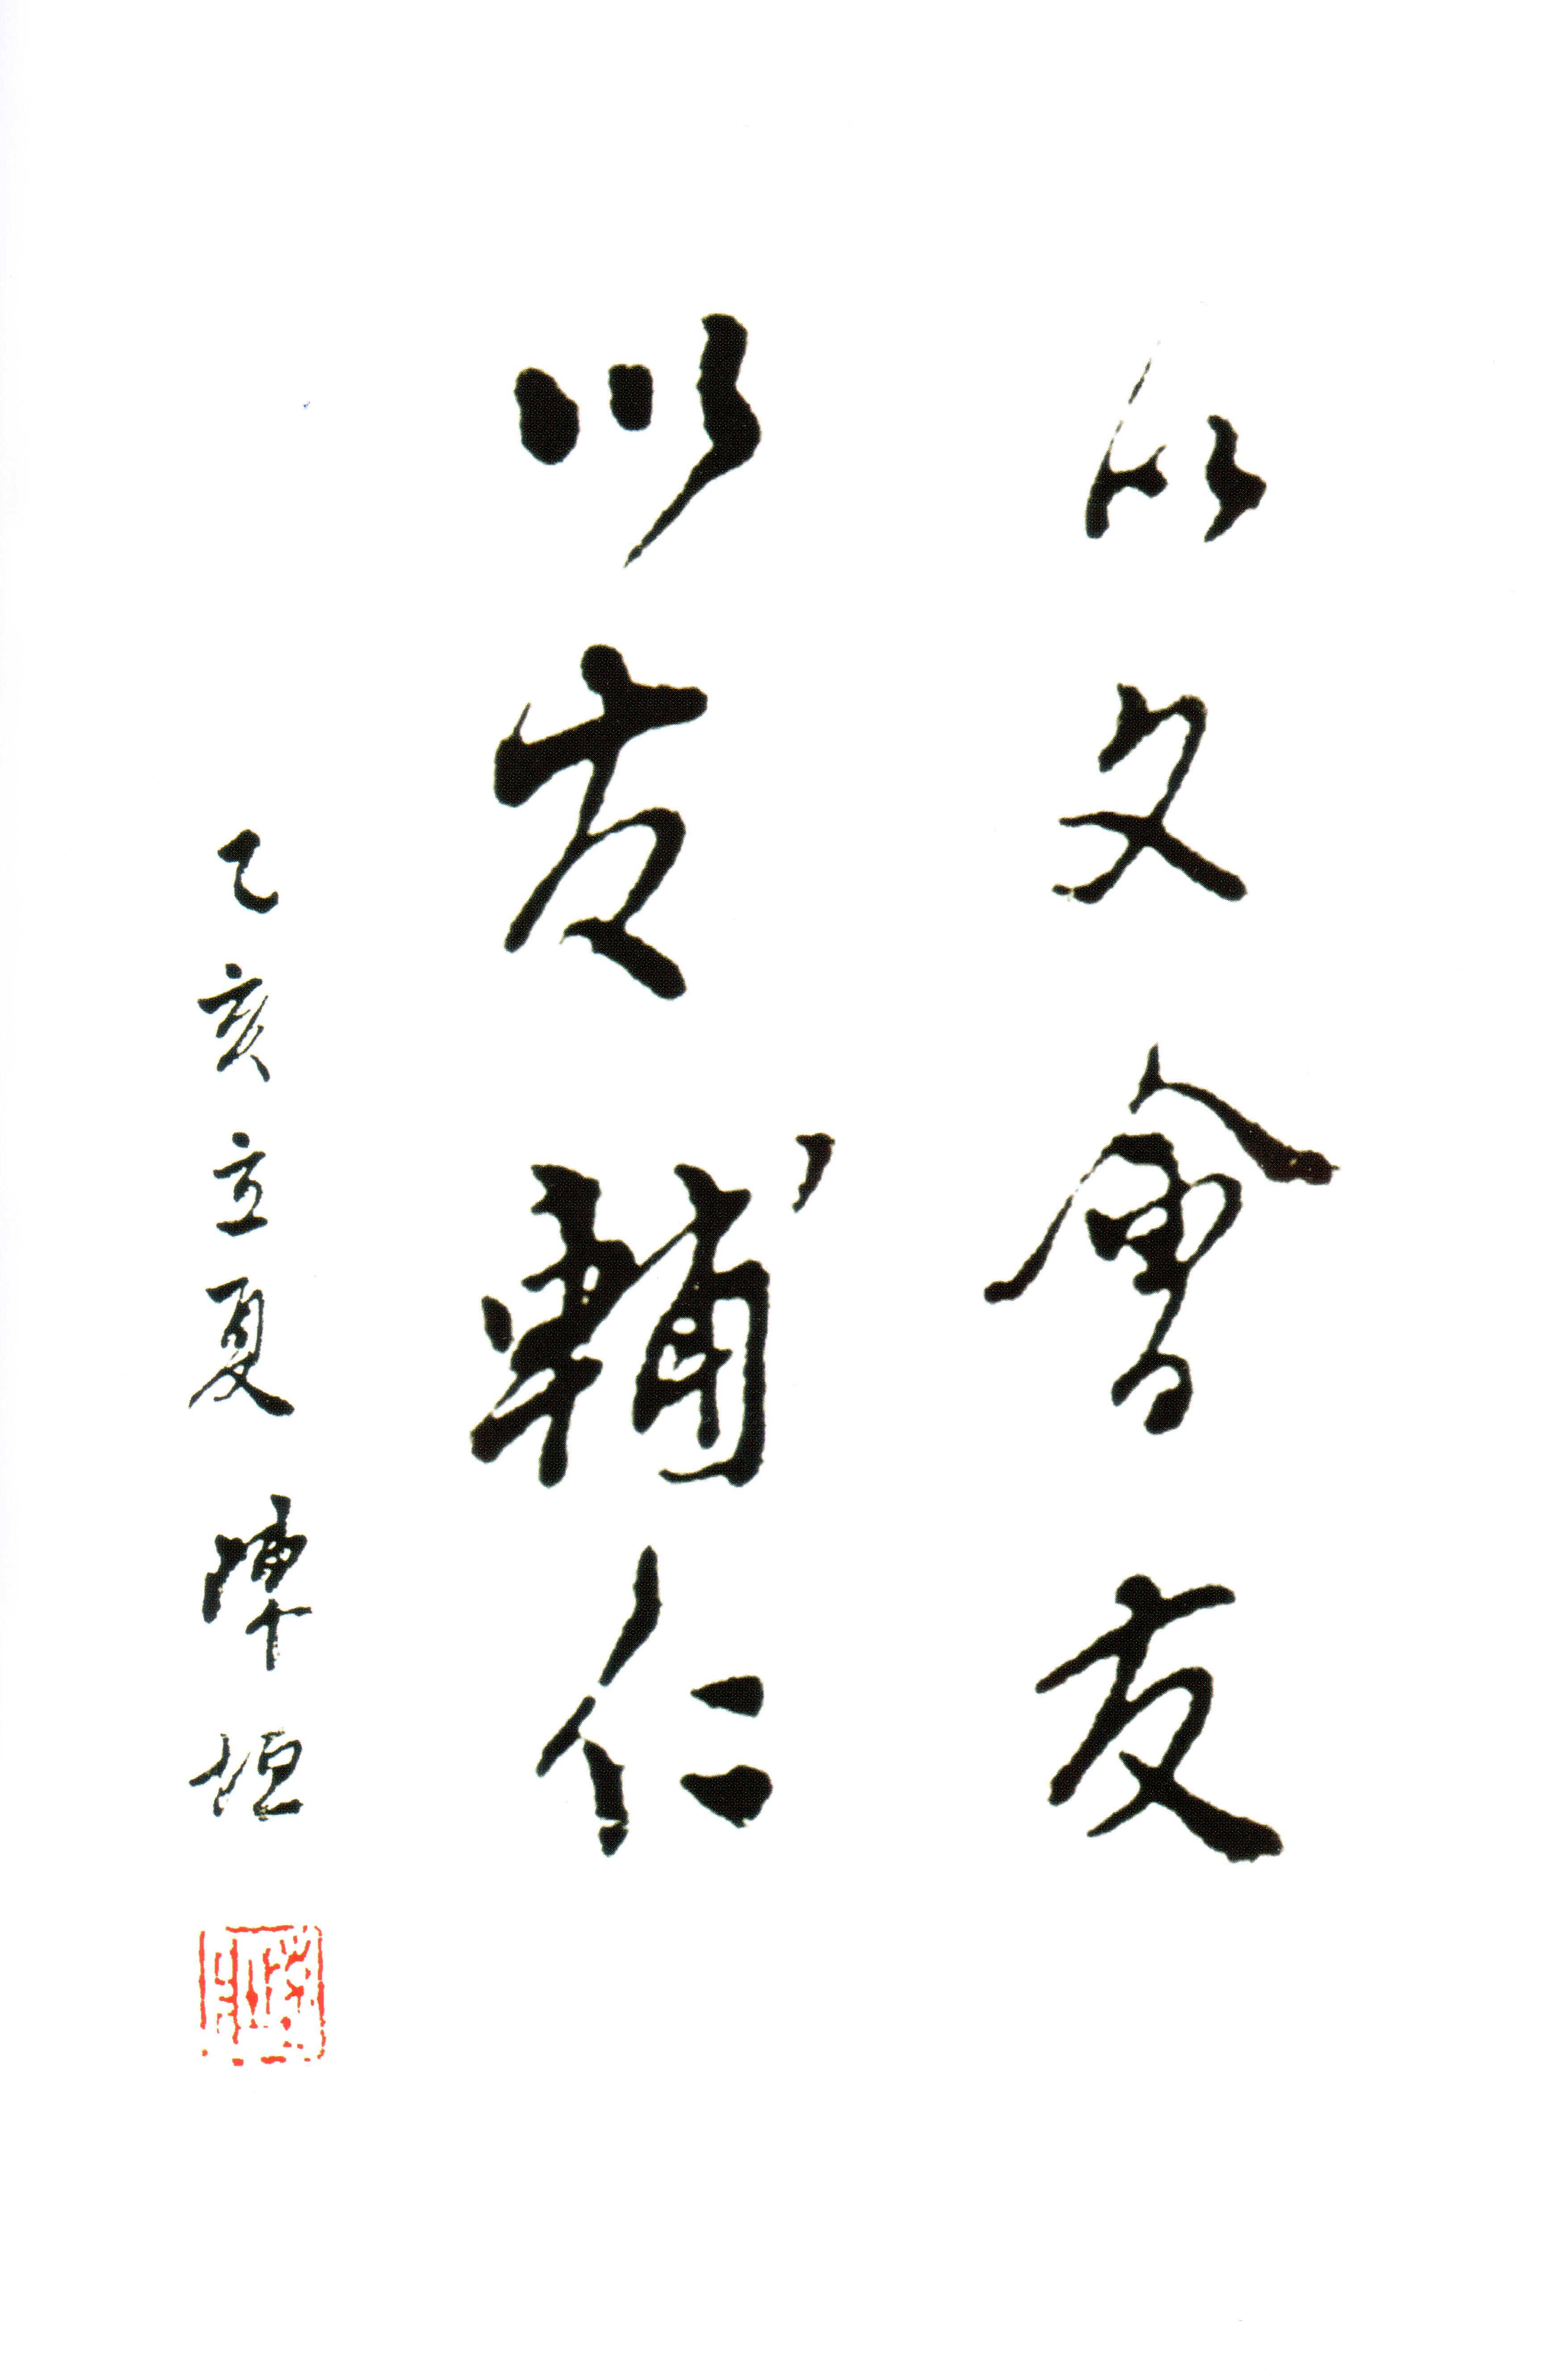 以文會友
以友輔仁
乙亥立夏陳垣